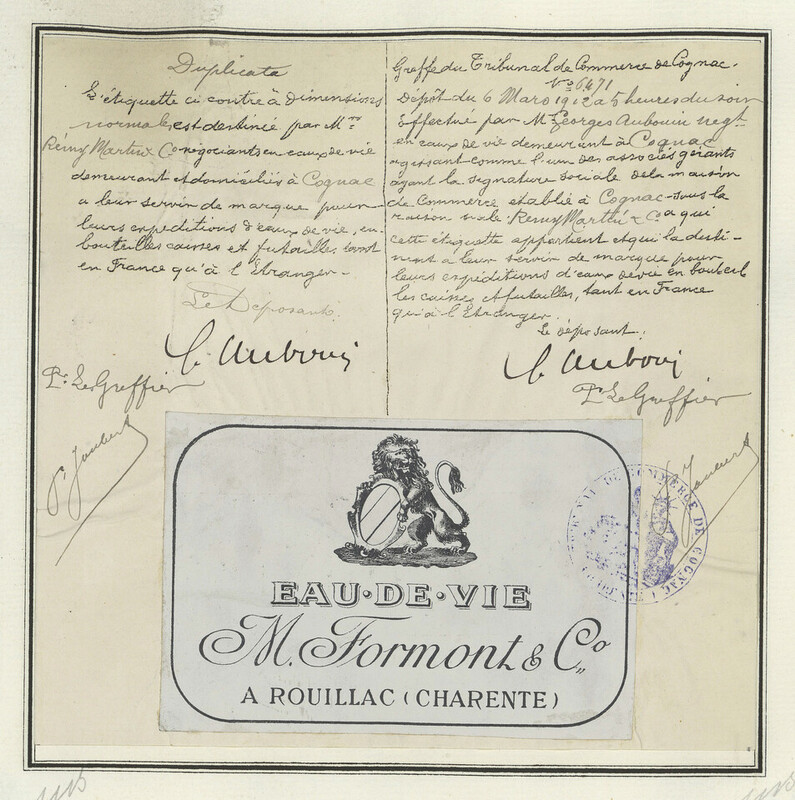 Duplicata
L'étiquette ci contre à dimensions
normales est destinée par Mrs
Rémy Martin & Co négociants en eaux de vie
demeurant et domiciliés à Cognac
a leur servir de marque pour
leurs expéditions d'eaux de vie, en
bouteilles caisses et futailles, tant
en France qu'à l'Etranger -
Le Déposant.
G. Aubouin
Pr. Le Greffier
P. Joubert
Greffe du Tribunal de Commerce de Cognac.
No 6471
Dépôt du 6 Mars 1912 à 5 heures du soir
Effectué par Mr Georges Aubouin negt
en eaux de vie demeurant à Cognac
agissant comme l'un des associés gérants
ayant la signature sociale de la maison
de Commerce etablie à Cognac sous la
raison sociale: Remy Martin & Co a qui
cette étiquette appartient et qui la desti-
nent à leur servir de marque pour
leurs expéditions d'eaux de vie en bouteil
les caisses et futailles, tant en France
qu'à l'Etranger.
Le déposant.
G. Aubouin
Pr. Le Greffier
P. Joubert
EAU·DE·VIE
M. Formont & Co
A ROUILLAC (CHARENTE)
TRIBUNAL DE COMMERCE DE COGNAC